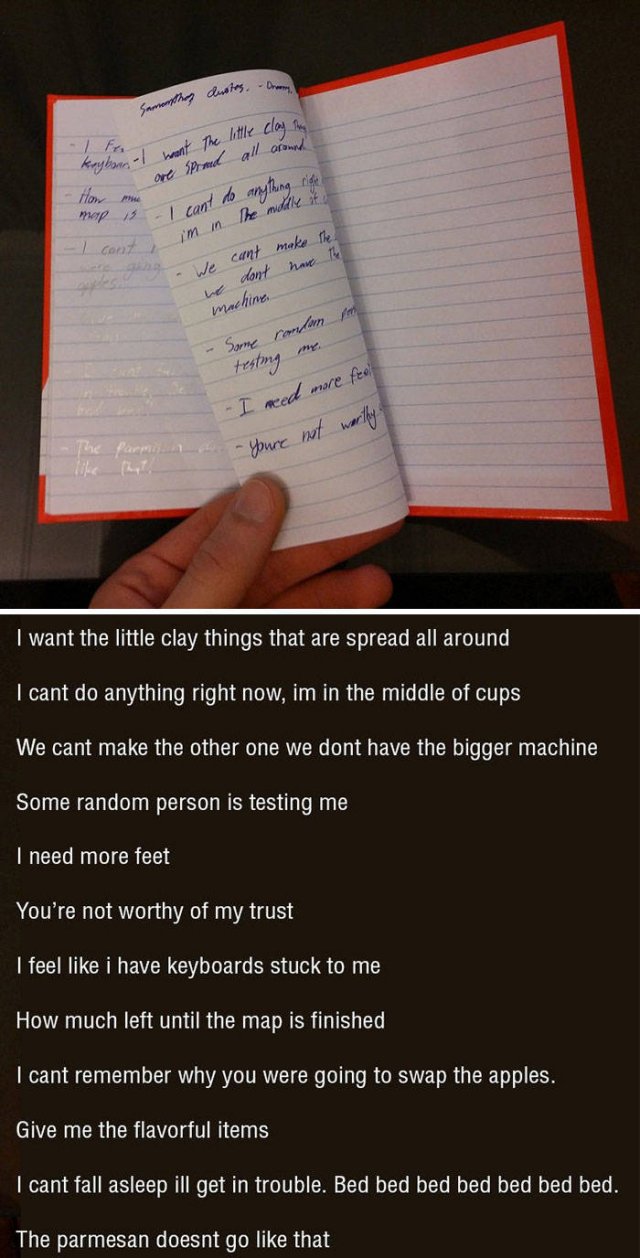 quotes. -
- I want The little clay
are spread all around
- I cant do anything right
im in The middle of
- We cant make The
we dont have The
machine.
- Some random
testing me.
- I need more
- youre not worthy
- I
- How
map is
- I cant
were going
apples
- The
like that!
I want the little clay things that are spread all around
I cant do anything right now, im in the middle of cups
We cant make the other one we dont have the bigger machine
Some random person is testing me
I need more feet
You're not worthy of my trust
I feel like i have keyboards stuck to me
How much left until the map is finished
I cant remember why you were going to swap the apples.
Give me the flavorful items
I cant fall asleep ill get in trouble. Bed bed bed bed bed bed bed.
The parmesan doesnt go like that